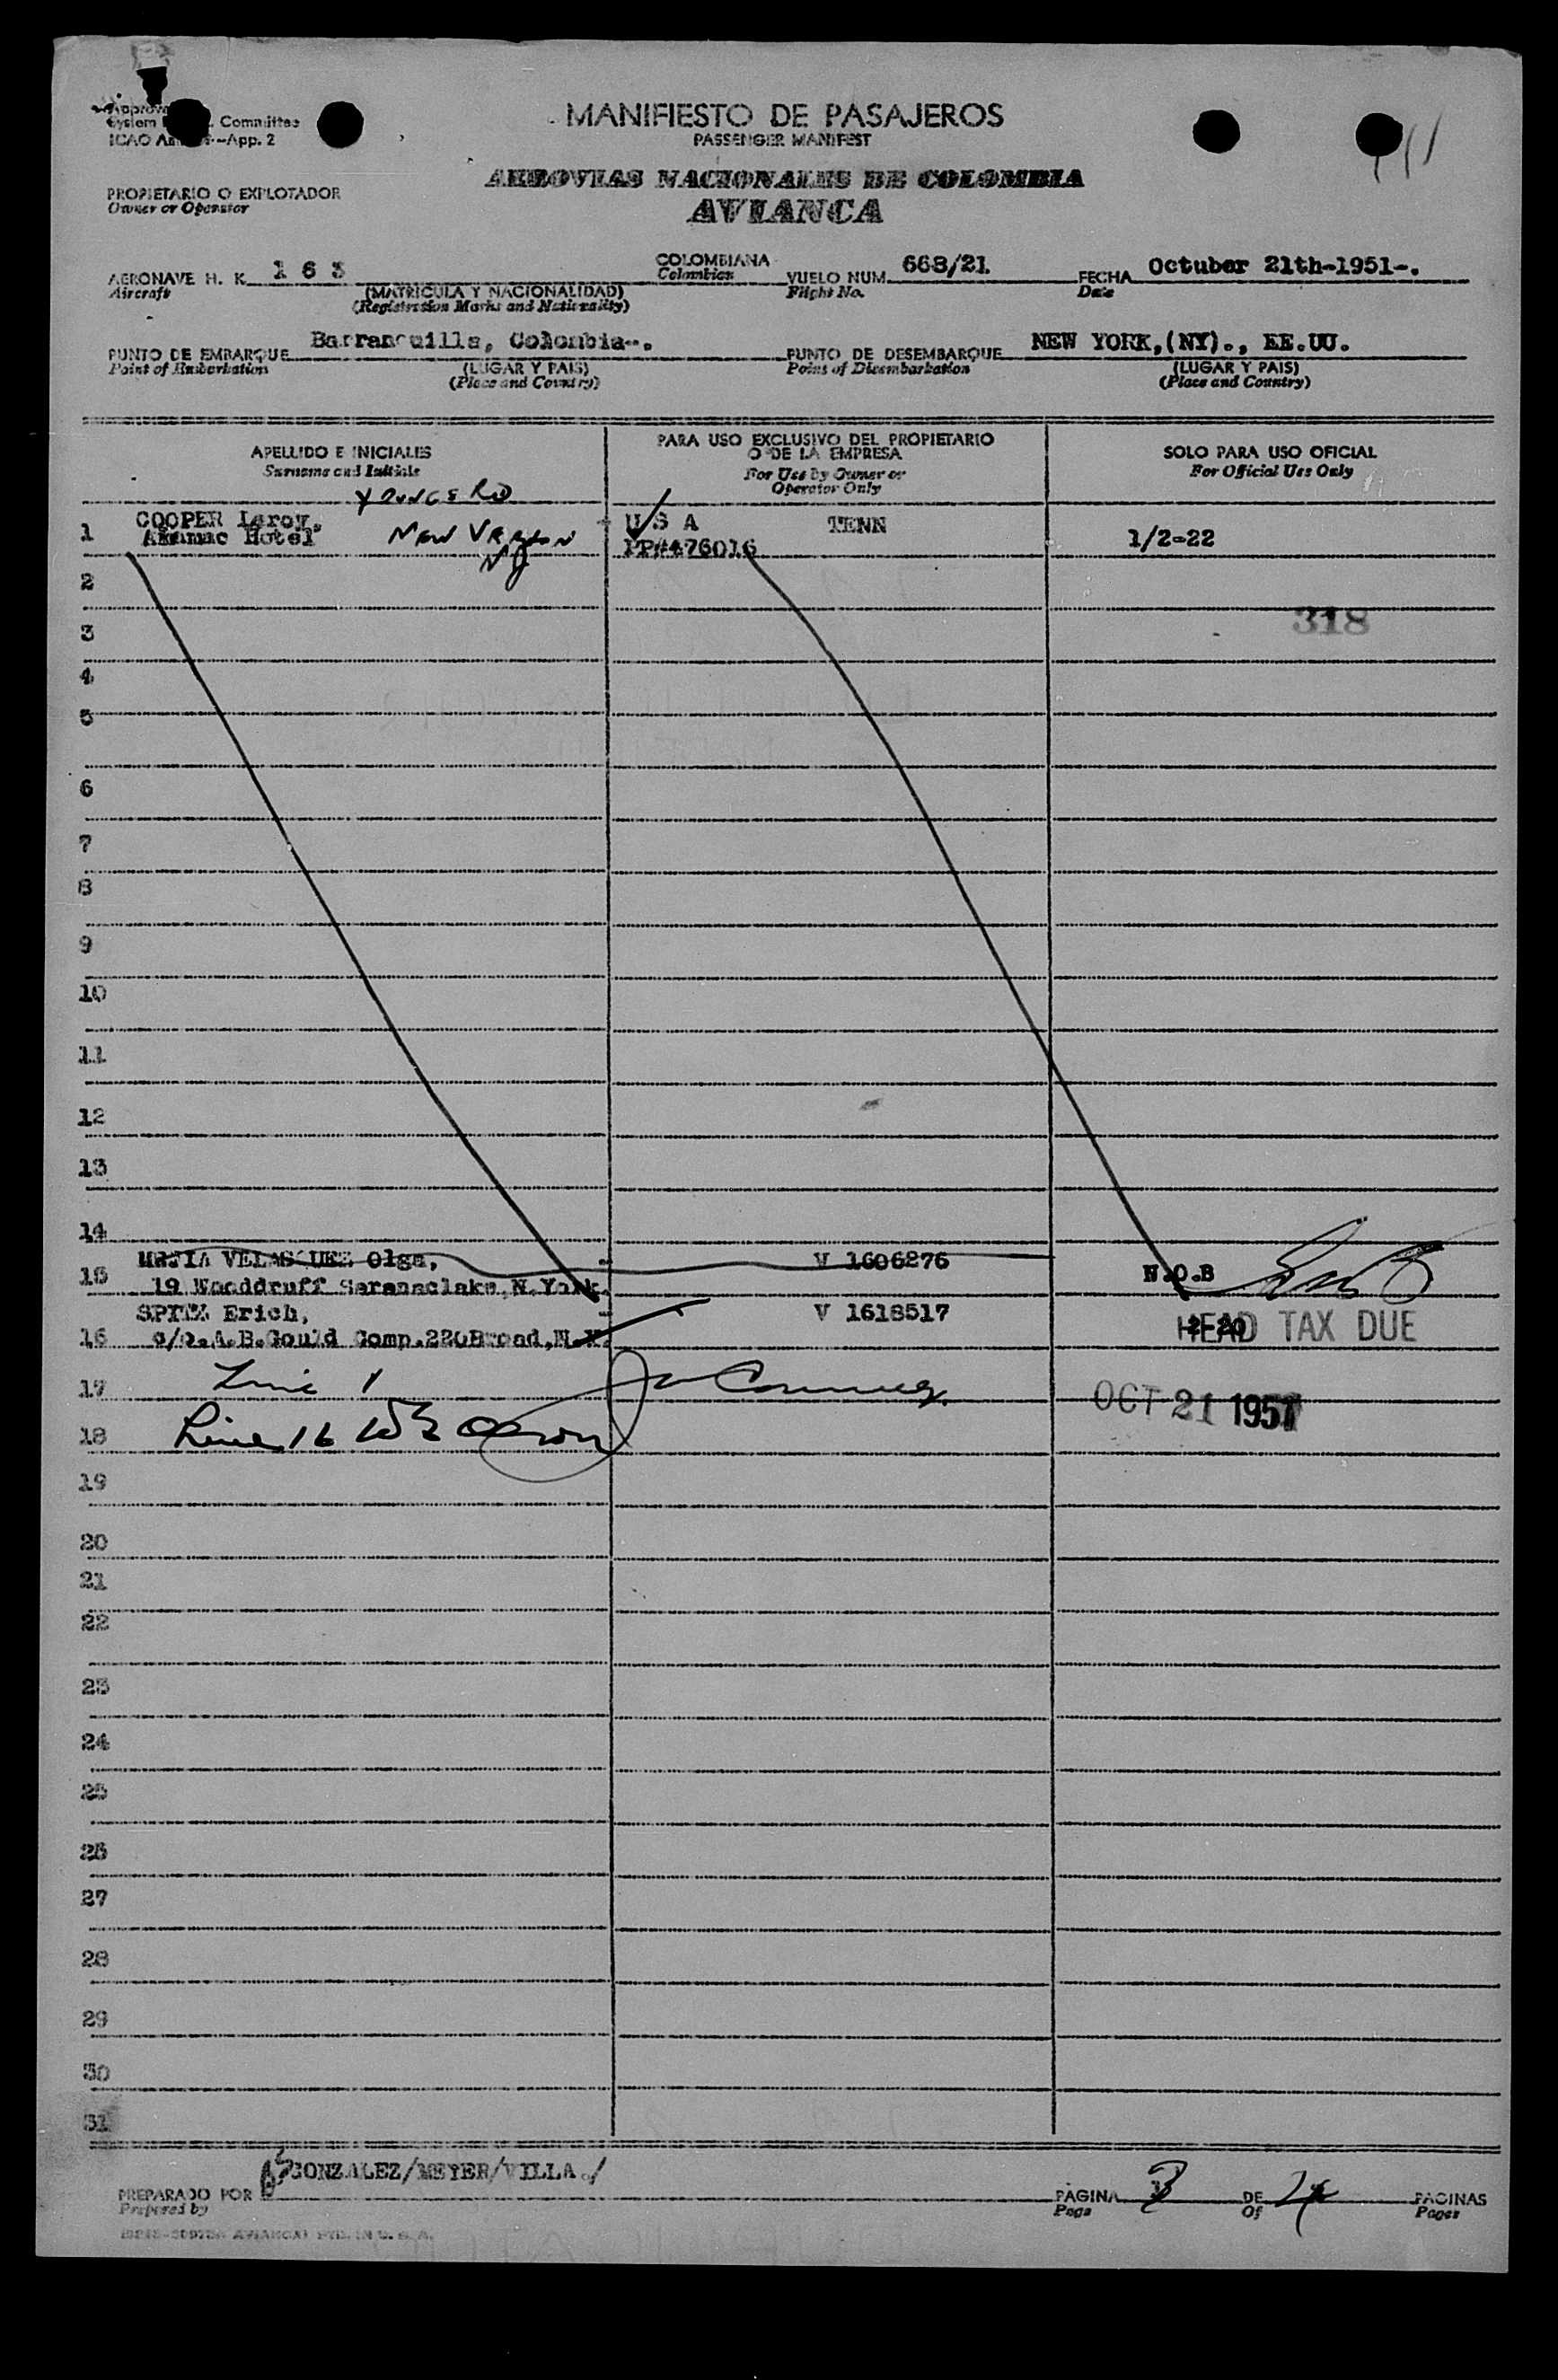 Committee
ICAO
--App. 2
MANIFIESTO DE PASAJEROS
PASSENGER MANIFEST
PROPIETARIO O EXPLOTADOR
Owner or Operator
AEROVIAS NACIONALES DE COLOMBIA
AVIANCA
AERONAVE H. K. 163 COLOMBIANA VUELO NUM. 668/21 FECHA Octuber 21th-1951-.
Aircraft Colombian Flight No. Date
(MATRICULA Y NACIONALIDAD)
(Registration Marks and Nationality)
PUNTO DE EMBARQUE Barranquilla, Colombia-. PUNTO DE DESEMBARQUE NEW YORK,(NY)., EE.UU.
Point of Embarkation (LUGAR Y PAIS) Point of Disembarkation (LUGAR Y PAIS)
(Place and Country) (Place and Country)
APELLIDO E INICIALES PARA USO EXCLUSIVO DEL PROPIETARIO O DE LA EMPRESA SOLO PARA USO OFICIAL
Surname and Initials For Use by Owner or Operator Only For Official Use Only
YOUNGS RD
COOPER Leroy, U S A TENN
1 Hotel NEW VERNON PP#476016 1/2-22
NJ
2
3 318
4
5
6
7
8
9
10
11
12
13
14
MEJIA VELASQUEZ Olga, V 1606276
15 19 Wooddruff Saranaclake, N.York. N.O.B
SPITZ Erich, V 1618517
16 c/o.A.B.Gould Comp.220Broad,N.Y. HEAD TAX DUE
17 Line 1 OCT 21 1951
18 Line 16
19
20
21
22
23
24
25
26
27
28
29
30
31
PREPARADO POR GONZALEZ/MEYER/VILLA./ PAGINA 3 DE PAGINAS
Prepared by Page Of Pages
AVIANCA) PTD. IN U. S. A.